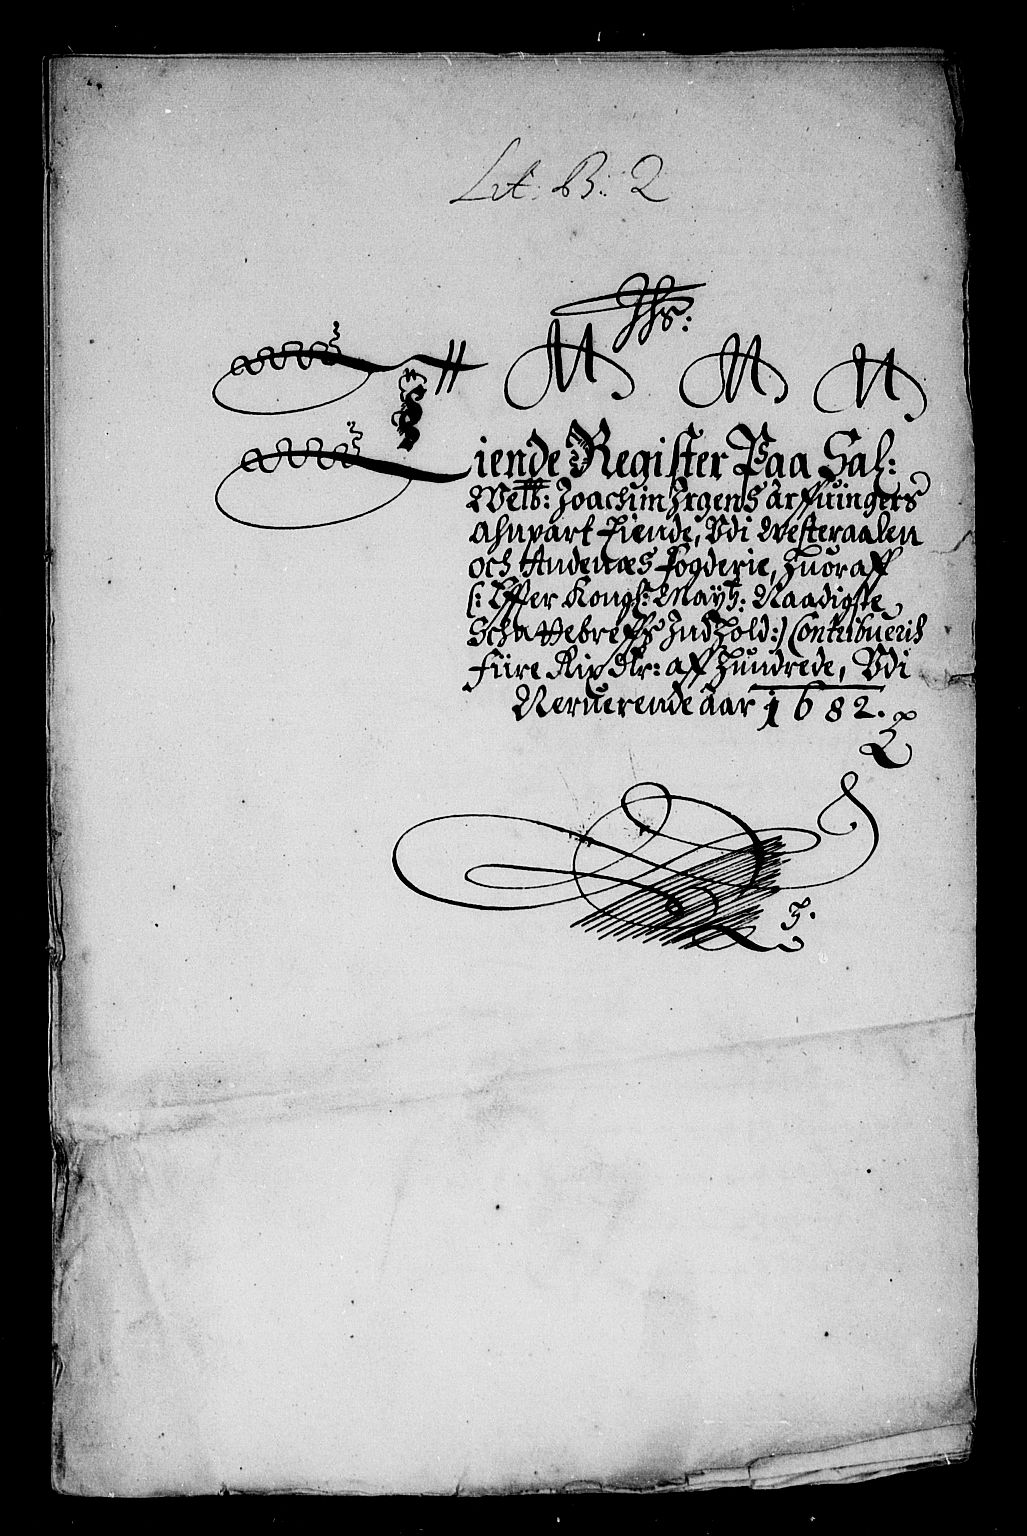 Lit: B: 2
Jhs:
Tiende Register Paa Sal:
Welb: Joachim Irgens Arffuingers
Anpart Tiende, Udi Westeraalen
och Andenæs Fogderie, Huoraff
(: Effter Kongl: Mayts: Naadigste
Schattebreffs Indhold:) Contribueris
Fiire Rix dlr: aff Hundrede, Udi
Neruerende aar 1682.